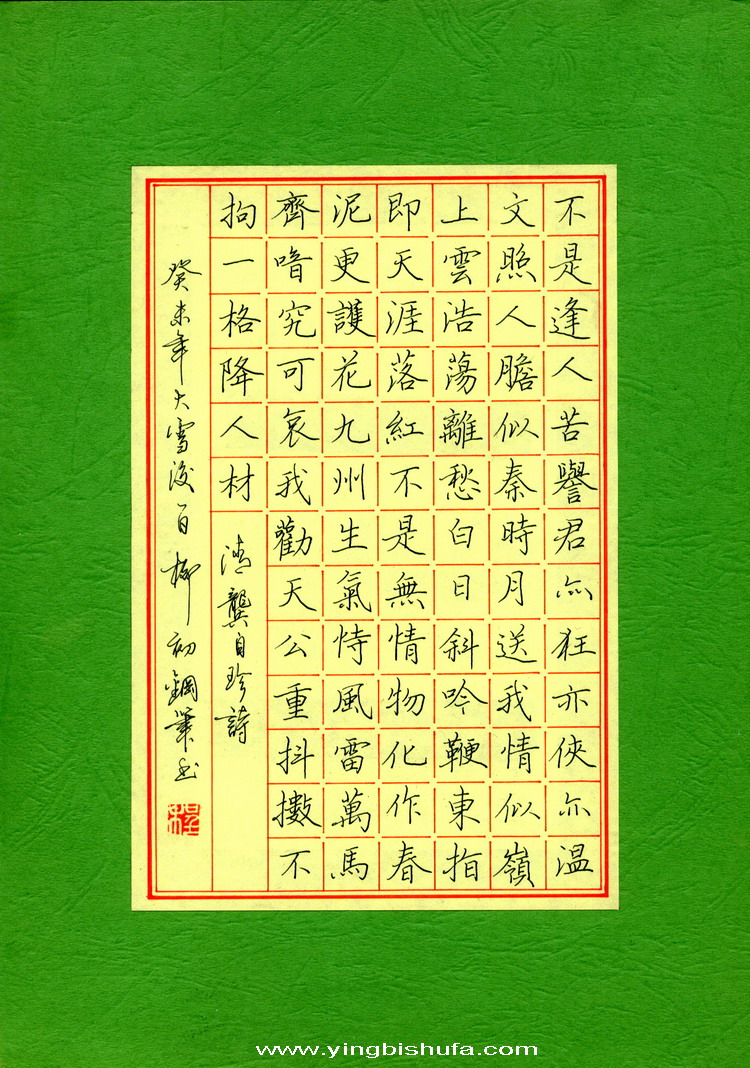 不是逢人苦譽君亦狂亦俠亦温
文照人膽似秦時月送我情似嶺
上雲浩蕩離愁白日斜吟鞭東指
即天涯落紅不是無情物化作春
泥更護花九州生氣恃風雷萬馬
齊喑究可哀我勸天公重抖擻不
拘一格降人材
清龔自珍詩
癸未年大雪後一日柳初鋼筆書
www.yingbishufa.com